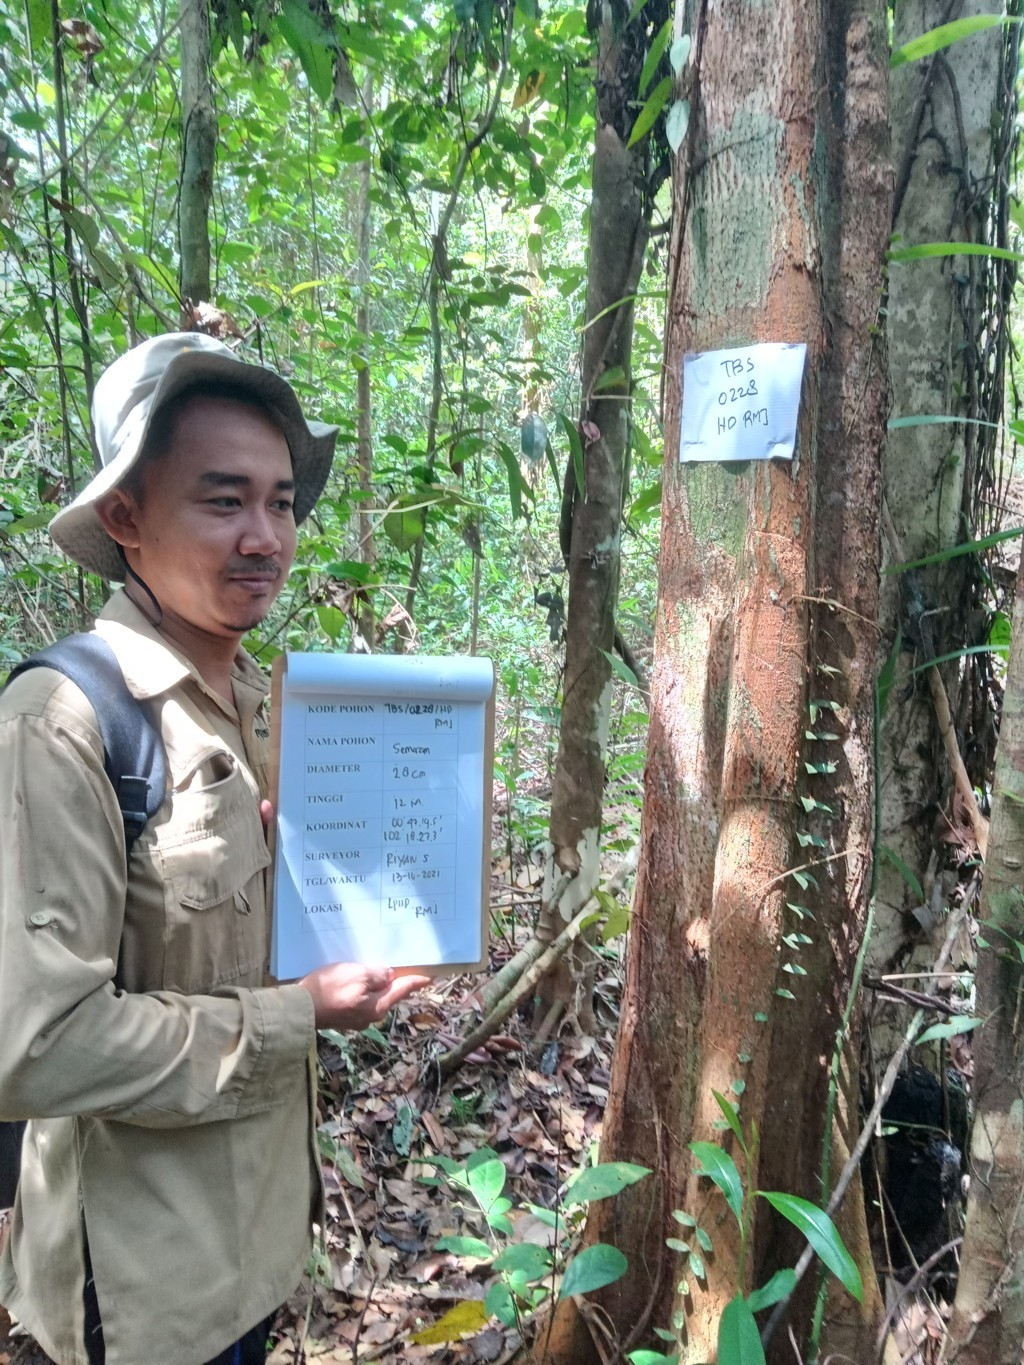 TBS
0228
HD RMJ
KODE POHON TBS/0228/HD
RMJ
NAMA POHON Semaram
DIAMETER 28 cm
TINGGI 12 M
KOORDINAT 00°47'19.5"
102°18'27.3"
SURVEYOR RIYAN S
TGL/WAKTU 13-10-2021
LOKASI LPHP
RMJ